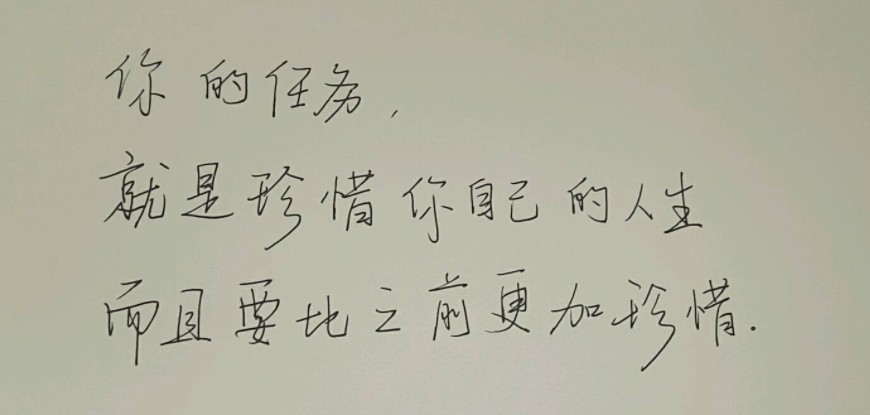 你的任务,
就是珍惜你自己的人生
而且要地之前更加珍惜.